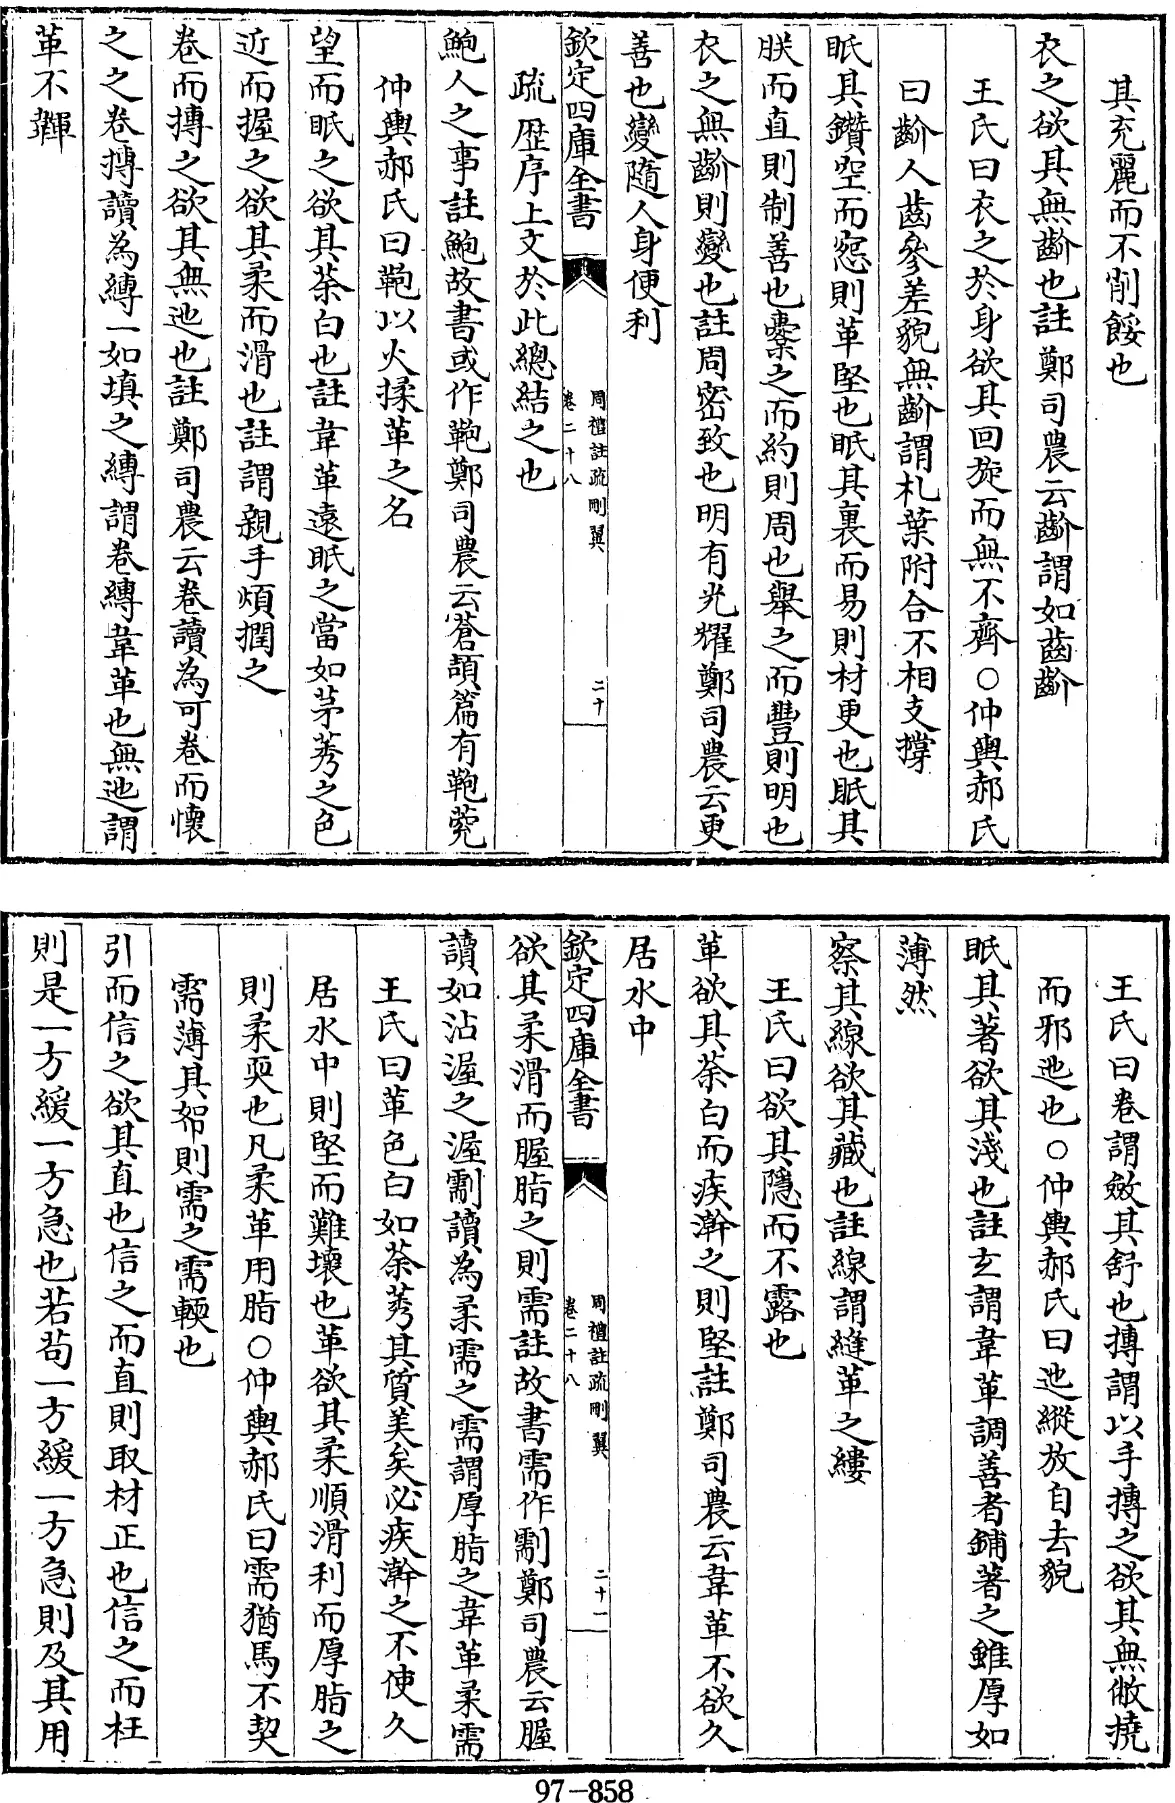 其充麗而不削餒也
衣之欲其無齘也註鄭司農云齘謂如齒齘
王氏曰衣之於身欲其回旋而無不齊○仲輿郝氏
曰齘人齒參差貌無齘謂札葉附合不相支撐
眡其鑽空而惌則革堅也眡其裏而易則材更也眡其
朕而直則制善也櫜之而約則周也舉之而豐則明也
衣之無齘則變也註周密致也明有光耀鄭司農云更
善也變隨人身便利
欽定四庫全書
周禮註疏刪翼
卷二十八
二十
疏歴序上文於此總結之也
鮑人之事註鮑故書或作鞄鄭司農云蒼頡篇有鞄㼱
仲輿郝氏曰鞄以火揉革之名
望而眡之欲其荼白也註韋革遠眡之當如茅莠之色
近而握之欲其柔而滑也註謂親手煩撋之
卷而摶之欲其無迆也註鄭司農云卷讀為可卷而懷
之之卷摶讀為縳一如填之縳謂卷縳韋革也無迆謂
革不𩏽
王氏曰卷謂斂其舒也摶謂以手摶之欲其無攲撓
而邪迆也○仲輿郝氏曰迆縱放自去貌
眡其著欲其淺也註玄謂韋革調善者鋪著之雖厚如
薄然
察其線欲其藏也註線謂縫革之縷
王氏曰欲其隱而不露也
革欲其荼白而疾澣之則堅註鄭司農云韋革不欲久
居水中
欽定四庫全書
周禮註疏刪翼
卷二十八
二十一
欲其柔滑而腛脂之則需註故書需作𠟺鄭司農云腛
讀如沾渥之渥𠟺讀為柔需之需謂厚脂之韋革柔需
王氏曰革色白如荼莠其質美矣必疾澣之不使久
居水中則堅而難壞也革欲其柔順滑利而厚脂之
則柔耎也凡柔革用脂○仲輿郝氏曰需猶馬不契
需薄其帤則需之需輭也
引而信之欲其直也信之而直則取材正也信之而枉
則是一方緩一方急也若苟一方緩一方急則及其用
97-858